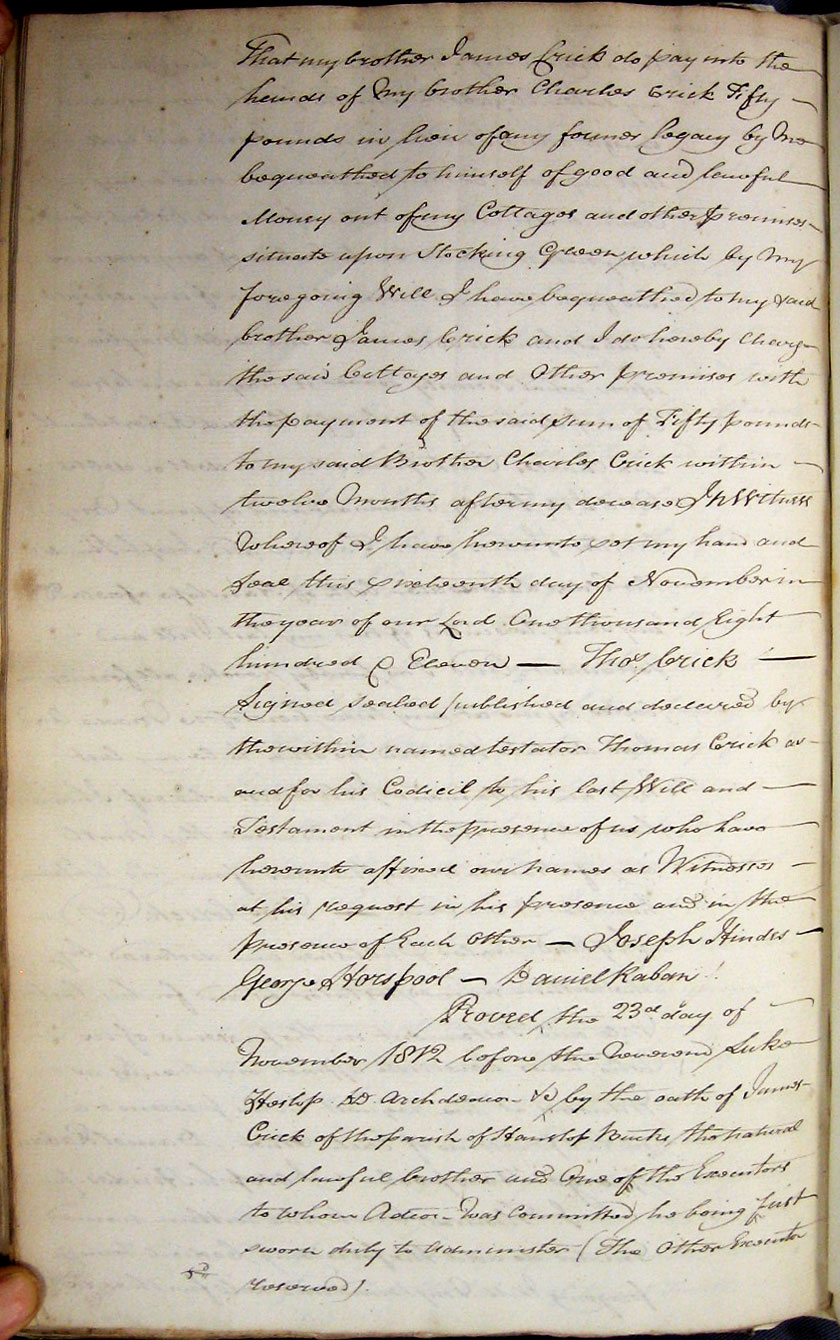 That my brother James Crick do pay into the
hands of My brother Charles Crick Fifty
pounds in lieu of any former legacy by Me
bequeathed to himself of good and lawful
Money out of my Cottages and other premises
situate upon Stocking Green which by My
foregoing Will I have bequeathed to my said
brother James Crick and I do hereby Charge
the said Cottages and Other premises with
the payment of the said sum of Fifty pounds
to my said Brother Charles Crick within
twelve Months after my decease In Witness
Whereof I have hereunto set my hand and
Seal this sixteenth day of November in
the year of our Lord One thousand Eight
hundred & Eleven — Thos. Crick —
Signed sealed published and declared by
the within named testator Thomas Crick as
and for his Codicil to his last Will and
Testament in the presence of us who have
hereunto affixed our names as Witnesses
at his request in his presence and in the
presence of Each Other — Joseph Hindes —
George Horspool — Daniel Raban
Proved the 23d day of
November 1812 before the Reverend Luke
Heslop Archdeacon &c by the oath of James
Crick of the parish of Hanslop Bucks, the natural
and lawful brother and One of the Executors
to whom Adcon was Committed he being first
sworn duly to administer (The Other Executor
reserved).